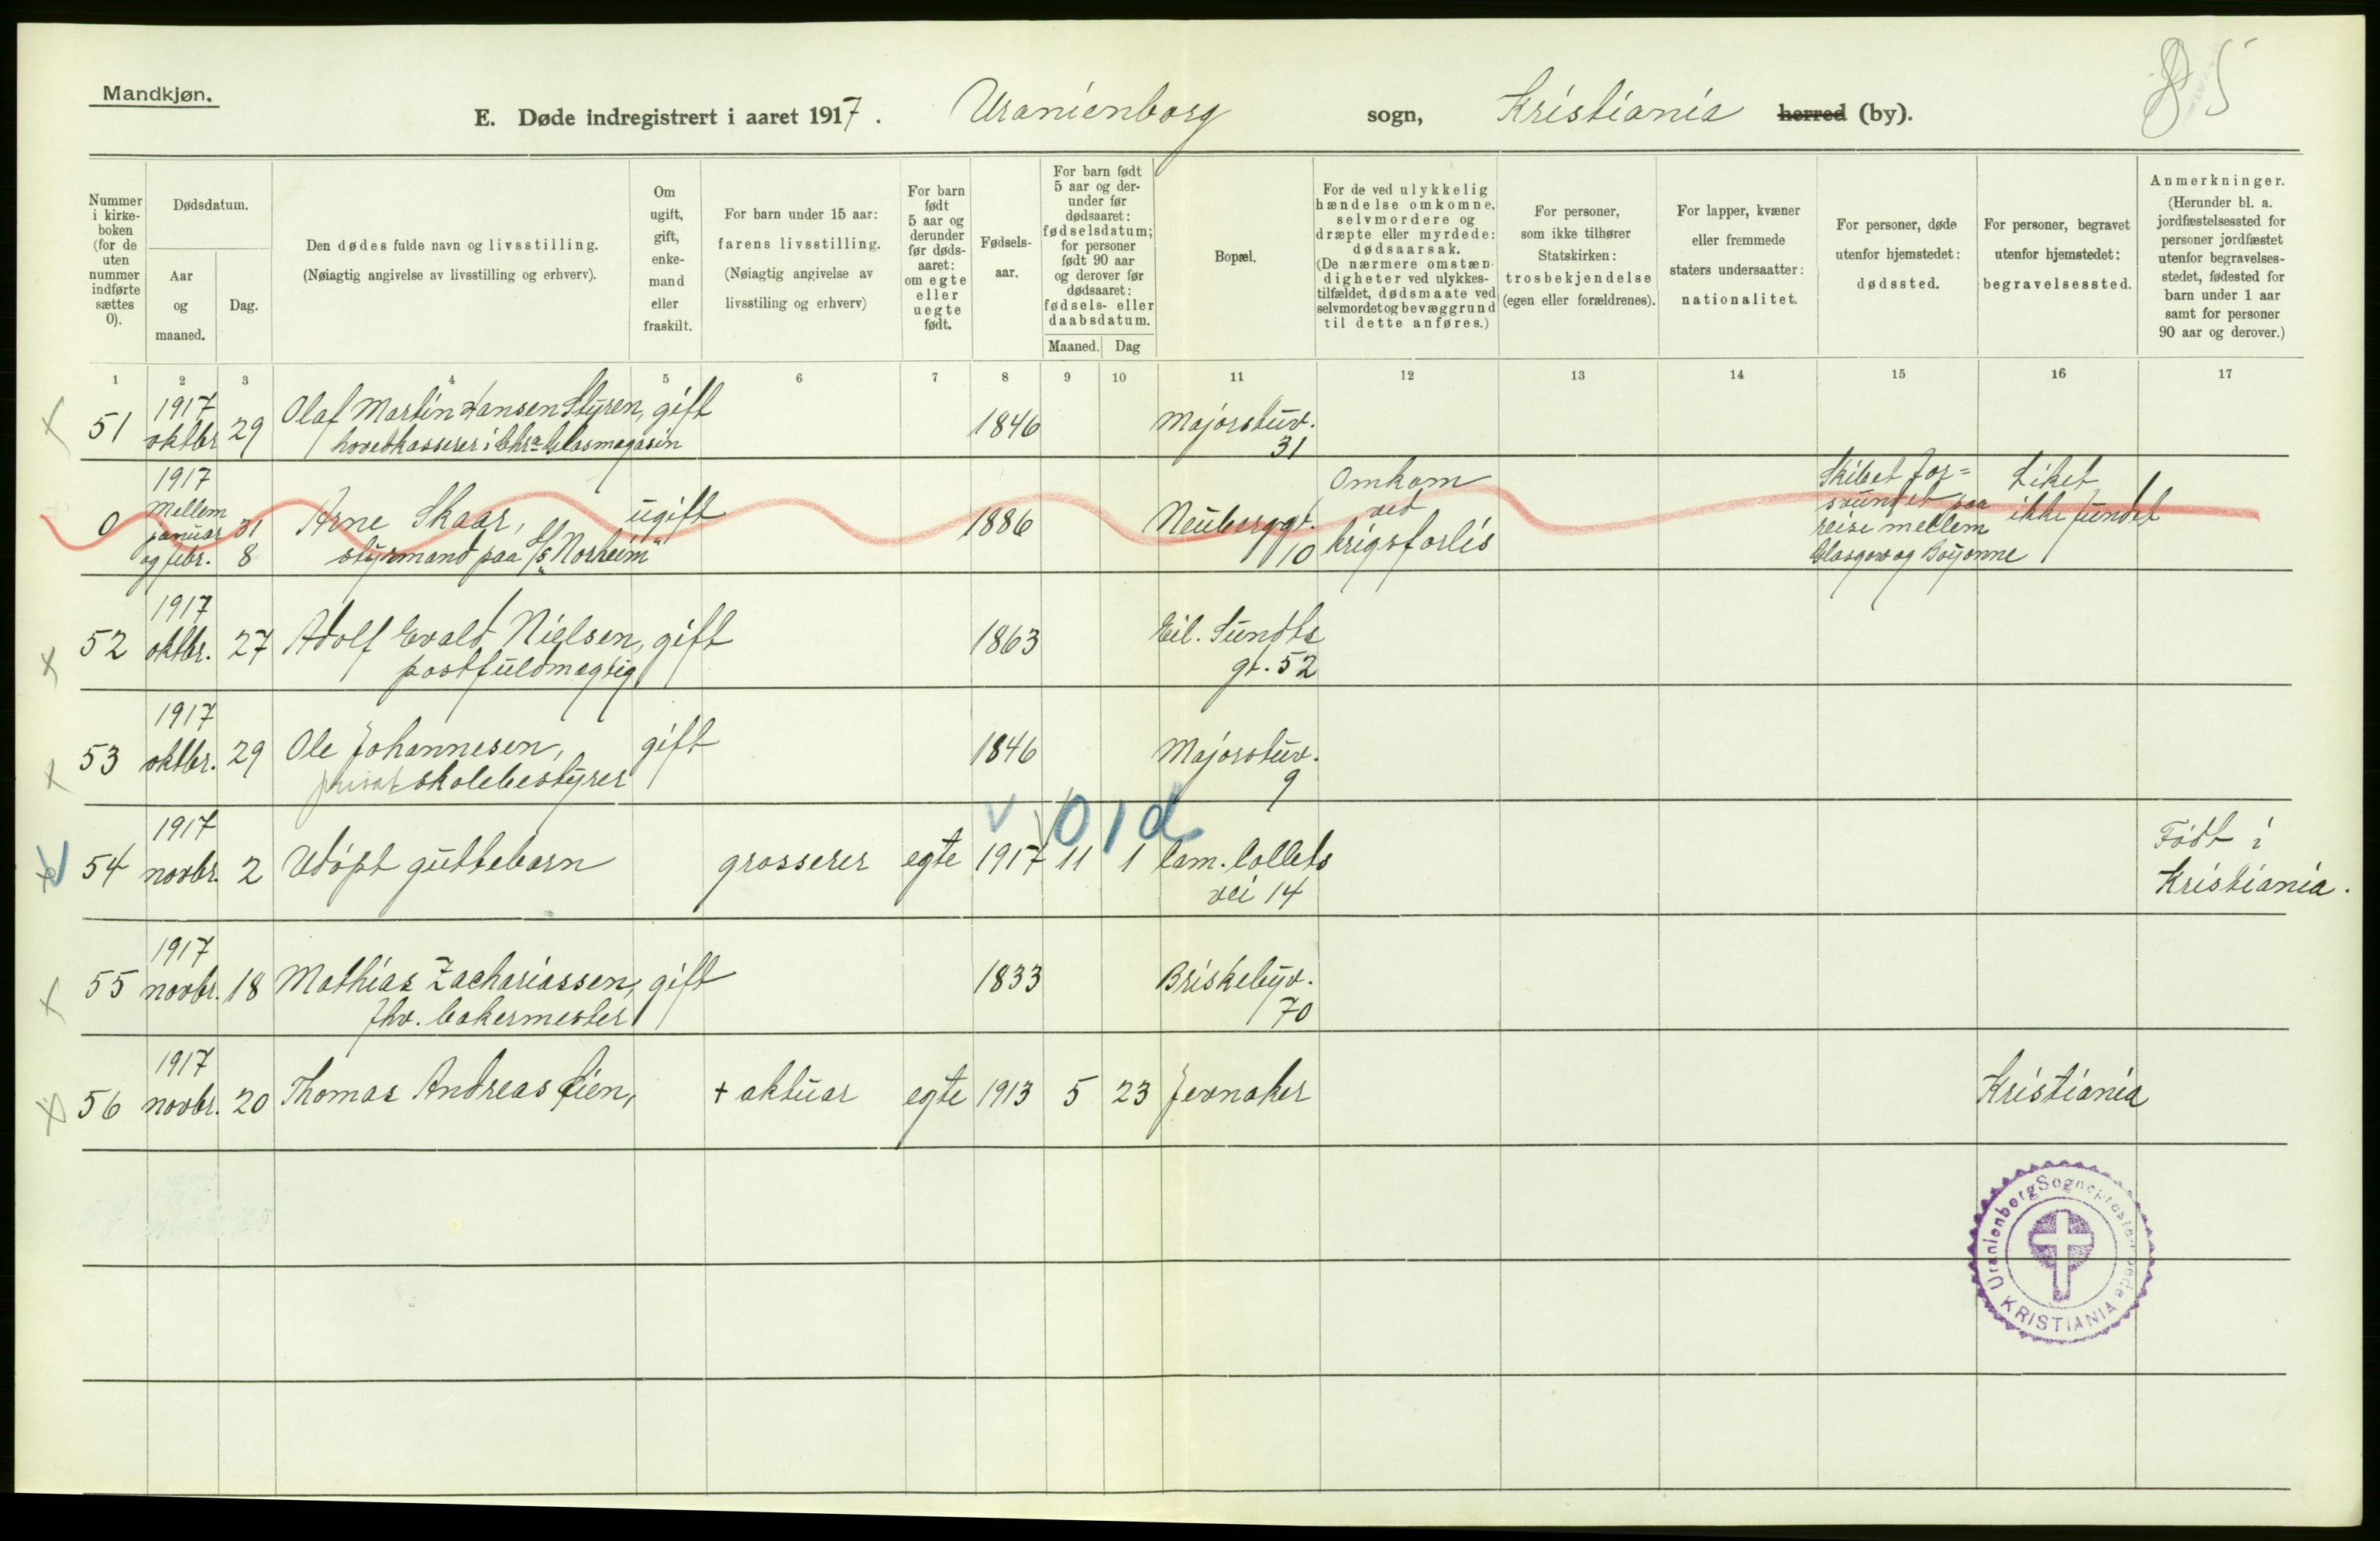 Mandkjøn.
85
E. Døde indregistrert i aaret 1917. Uranienborg sogn, Kristiania herred (by).
Nummer i kirke-boken (for de uten nummer indførte sættes 0).
Dødsdatum.
Aar og maaned.
Dag.
Den dødes fulde navn og livsstilling.
(Nøiagtig angivelse av livsstilling og erhverv).
Om ugift, gift, enke-mand eller fraskilt.
For barn under 15 aar: farens livsstilling.
(Nøiagtig angivelse av livsstiling og erhverv)
For barn født 5 aar og derunder før døds-aaret: om egte eller uegte født.
Fødsels-aar.
For barn født 5 aar og der-under før dødsaaret: fødselsdatum; for personer født 90 aar og derover før dødsaaret: fødsels- eller daabsdatum.
Maaned. Dag
Bopæl.
For de ved ulykkelig hændelse omkomne, selvmordere og dræpte eller myrdede: dødsaarsak.
(De nærmere omstæn-digheter ved ulykkes-tilfældet, dødsmaate ved selvmordet og bevæggrund til dette anføres.)
For personer, som ikke tilhører Statskirken: trosbekjendelse (egen eller forældrenes).
For lapper, kvæner eller fremmede staters undersaatter: nationalitet.
For personer, døde utenfor hjemstedet: dødssted.
For personer, begravet utenfor hjemstedet: begravelsessted.
Anmerkninger.
(Herunder bl. a. jordfæstelsessted for personer jordfæstet utenfor begravelses-stedet, fødested for barn under 1 aar samt for personer 90 aar og derover.)
1 2 3 4 5 6 7 8 9 10 11 12 13 14 15 16 17
51 1917 oktbr 29 Olaf Martin Hansen Styren, gift 1846 Majorstuv. 31
hovedkasserer i Chra Glasmagasin
0 1917 Mellem januar 31 og febr. 8 Arne Skaar, ugift 1886 Neuberggt. 10 Omkom ved krigsforlis Skibet for=svundet paa reise mellem Glasgow og Bayonne Liket ikke fundet
styrmand paa S/S "Norheim"
52 1917 oktbr. 27 Adolf Evald Nielsen, gift 1863 Eil. Sundts gt. 52
postfuldmægtig
53 1917 oktbr. 29 Ole Johannesen, gift 1846 Majorstuv. 9
privat skolebestyrer
v 0 1 d
54 1917 novbr. 2 Udøpt guttebarn grosserer egte 1917 11 1 Cam. Colletts vei 14 Født i Kristiania.
55 1917 novbr. 18 Mathias Zachariassen, gift 1833 Briskebyv. 70
fhv. bakermester
56 1917 novbr. 20 Thomas Andreas Lien, + aktuar egte 1913 5 23 Jevnaker Kristiania
Uranienborg Sogneprestembede
KRISTIANIA